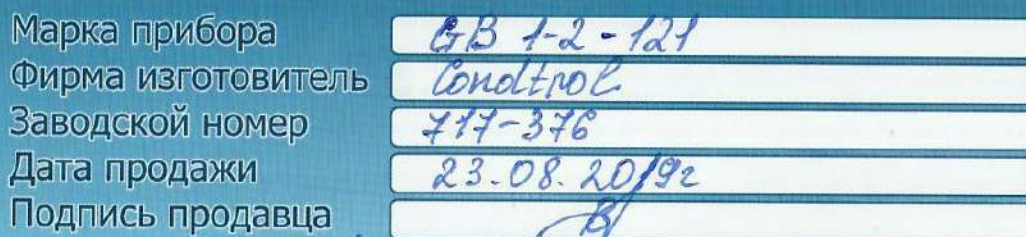 Марка прибора GB 1-2-121
Фирма изготовитель Condtrol
Заводской номер 717-376
Дата продажи 23.08.2019г
Подпись продавца